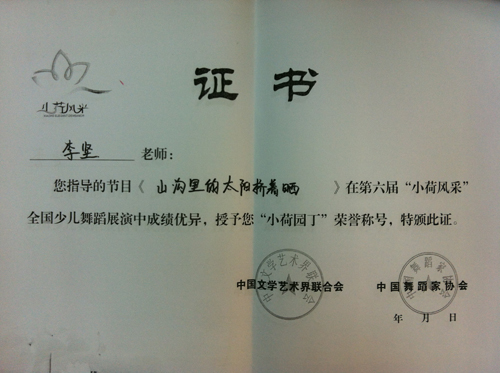 小荷风采
证书
李坚 老师：
您指导的节目《山沟里的太阳挤着晒》在第六届“小荷风采”
全国少儿舞蹈展演中成绩优异，授予您“小荷园丁”荣誉称号，特颁此证。
中国文学艺术界联合会 中国舞蹈家协会
年 月 日